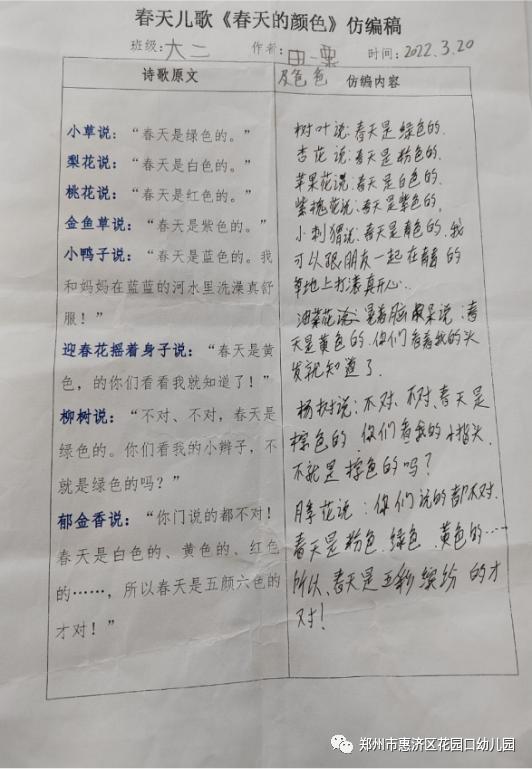 春天儿歌《春天的颜色》仿编稿
班级: 大二 作者: 田一栗 时间: 2022.3.20
诗歌原文
小草说：“春天是绿色的。”
梨花说：“春天是白色的。”
桃花说：“春天是红色的。”
金鱼草说：“春天是紫色的。”
小鸭子说：“春天是蓝色的。我
和妈妈在蓝蓝的河水里洗澡真舒
服！”
迎春花摇着身子说：“春天是黄
色，的你们看看我就知道了！”
柳树说：“不对、不对，春天是
绿色的。你们看我的小辫子，不
就是绿色的吗？”
郁金香说：“你门说的都不对！
春天是白色的、黄色的、红色
的……，所以春天是五颜六色的
才对！”
仿编内容
树叶说:春天是绿色的.
杏花说:春天是粉色的.
苹果花说:春天是白色的.
紫槐花说:春天是紫色的.
小刺猬说:春天是青色的.我
可以跟朋友一起在青青的
草地上打滚真开心..
油菜花晃着脑袋说:春
天是黄色的.你们看看我的头
发就知道了.
杨树说:不对、不对、春天是
棕色的 你们看我的小指头.
不就是棕色的吗?
月季花说:你们说的都不对.
春天是粉色.绿色.黄色的……
所以、春天是五彩缤纷的才
对!
郑州市惠济区花园口幼儿园